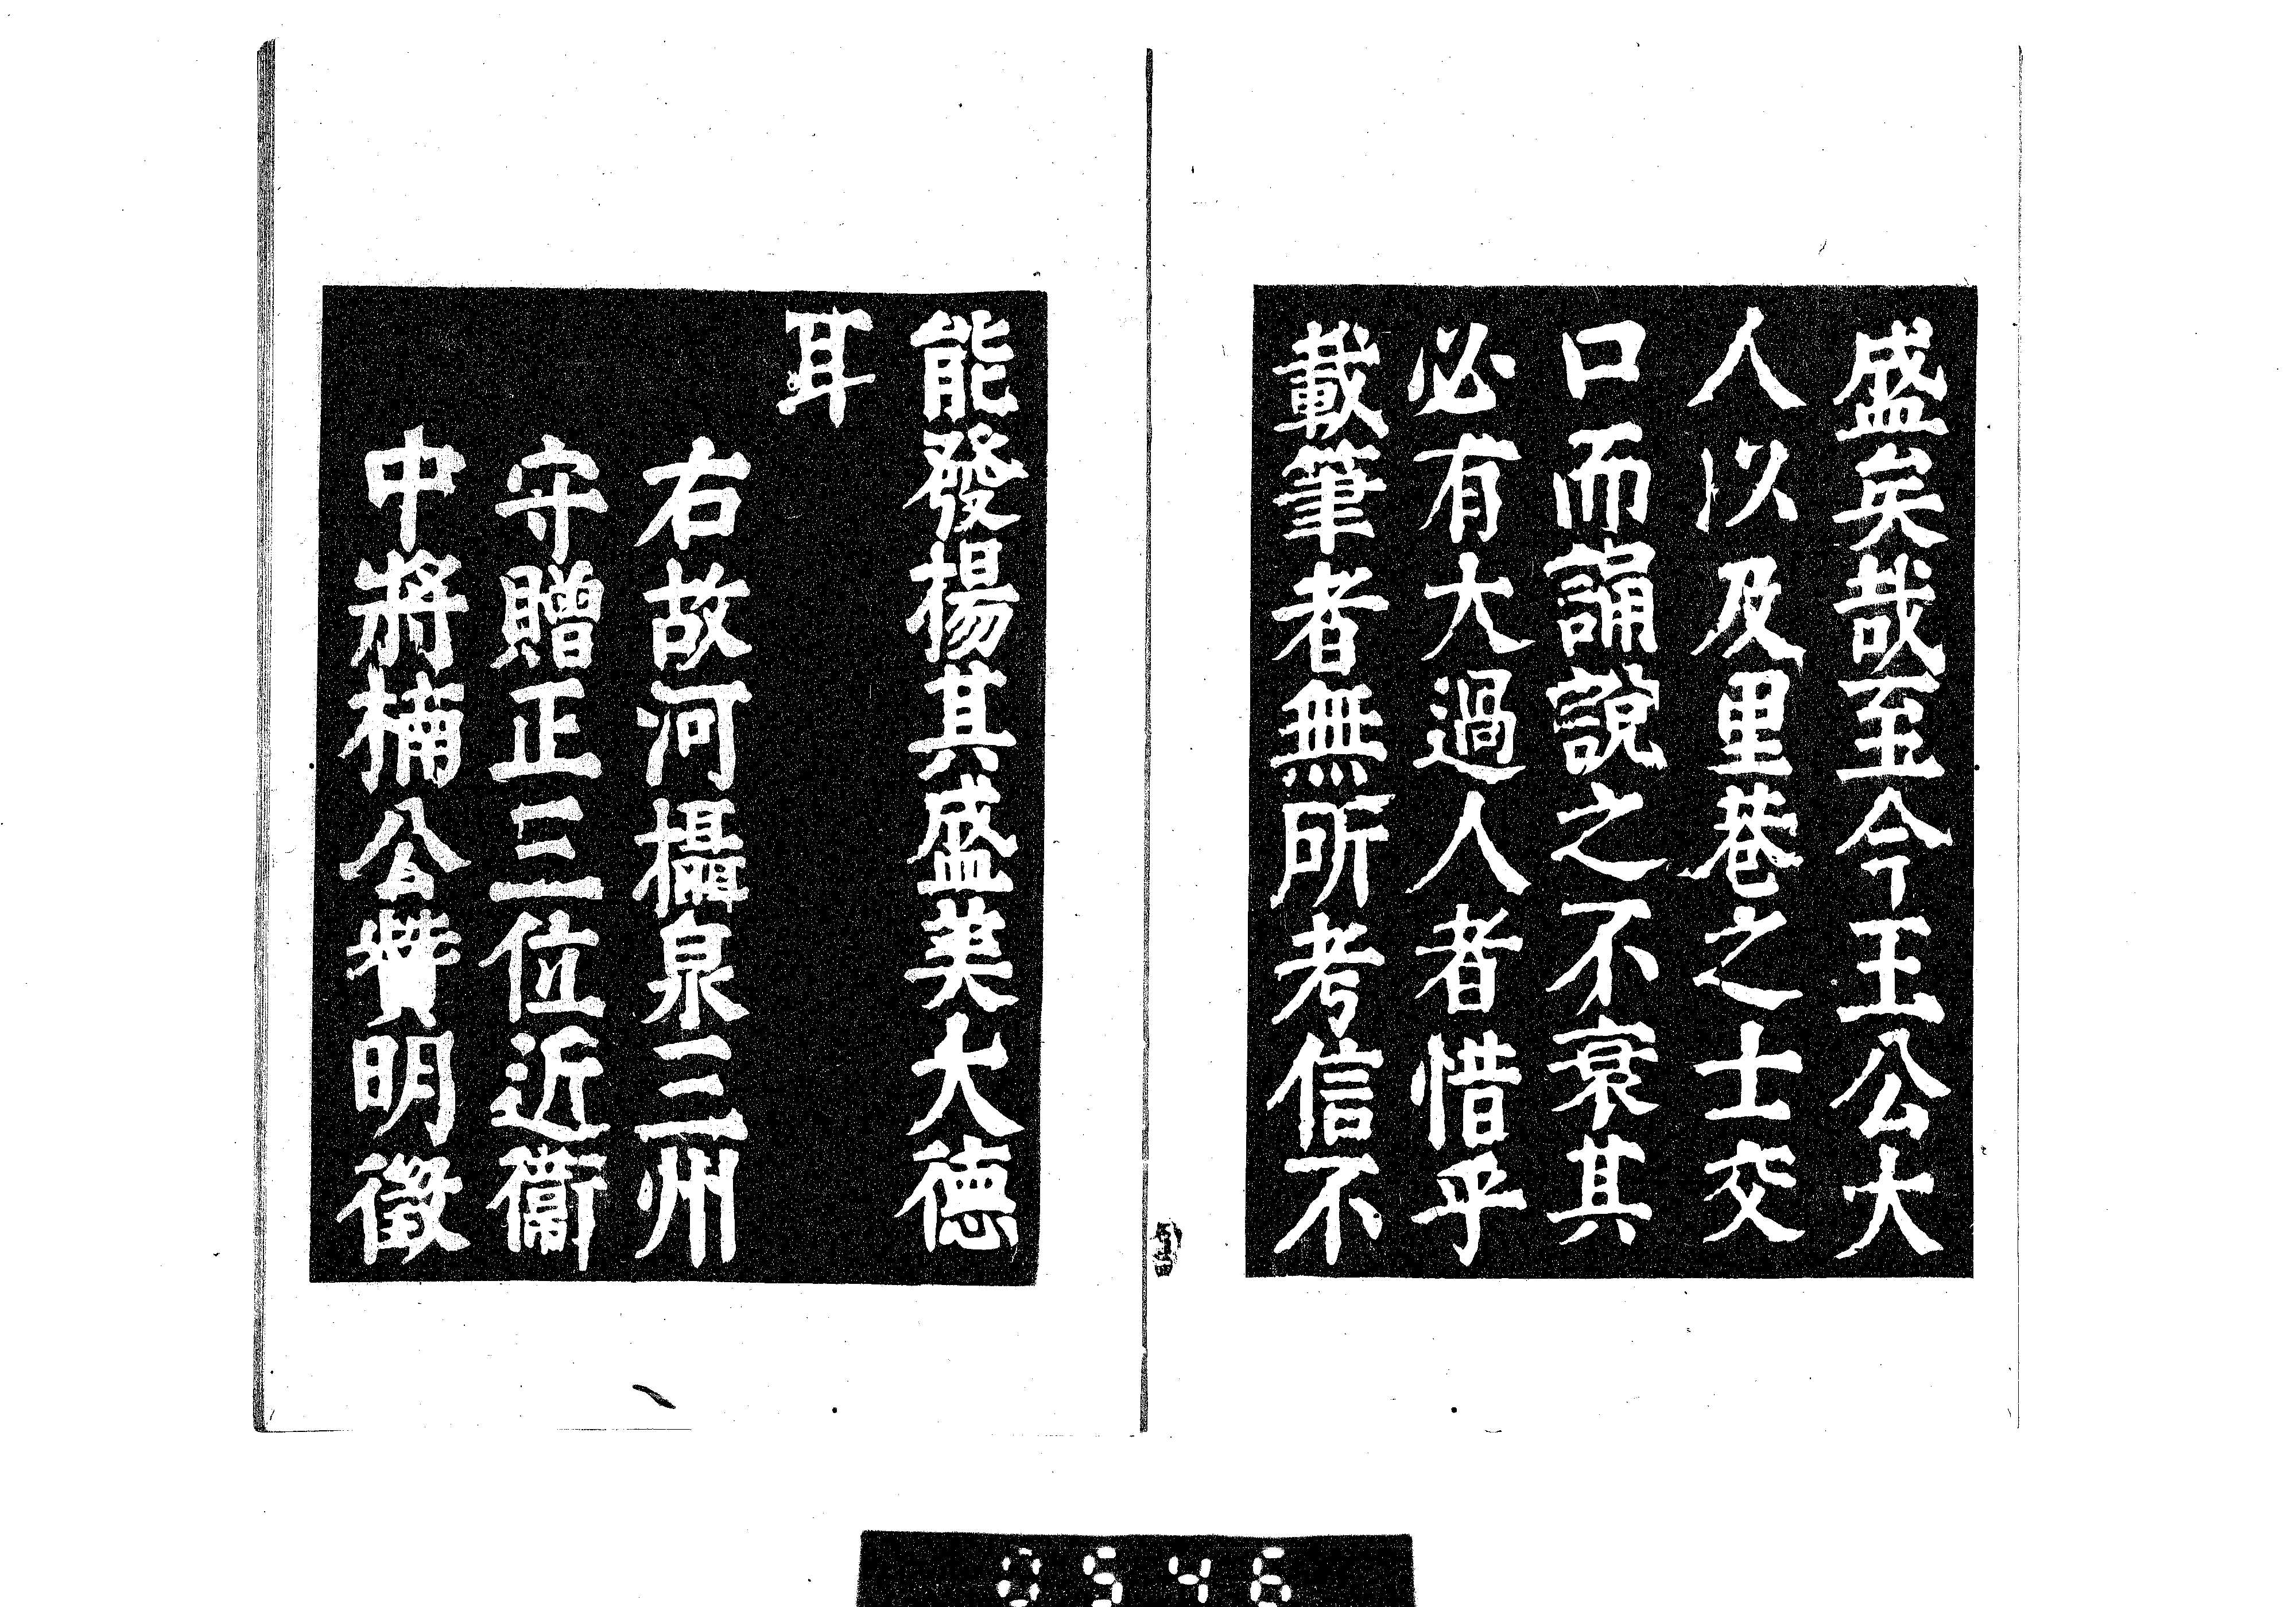 盛矣哉至今王公大
人以及里巷之士交
口而誦說之不衰其
必有大過人者惜乎
載筆者無所考信不
能發揚其盛美大德
耳
右故河攝泉三州
守贈正三位近衞
中將楠公贊明徵
0546